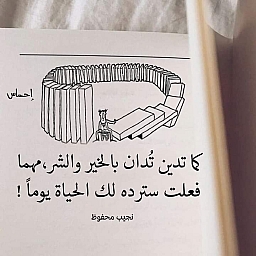 إحساس
كما تدين تُدان بالخير والشر،مهما
فعلت سترده لك الحياة يوماً !
نجيب محفوظ